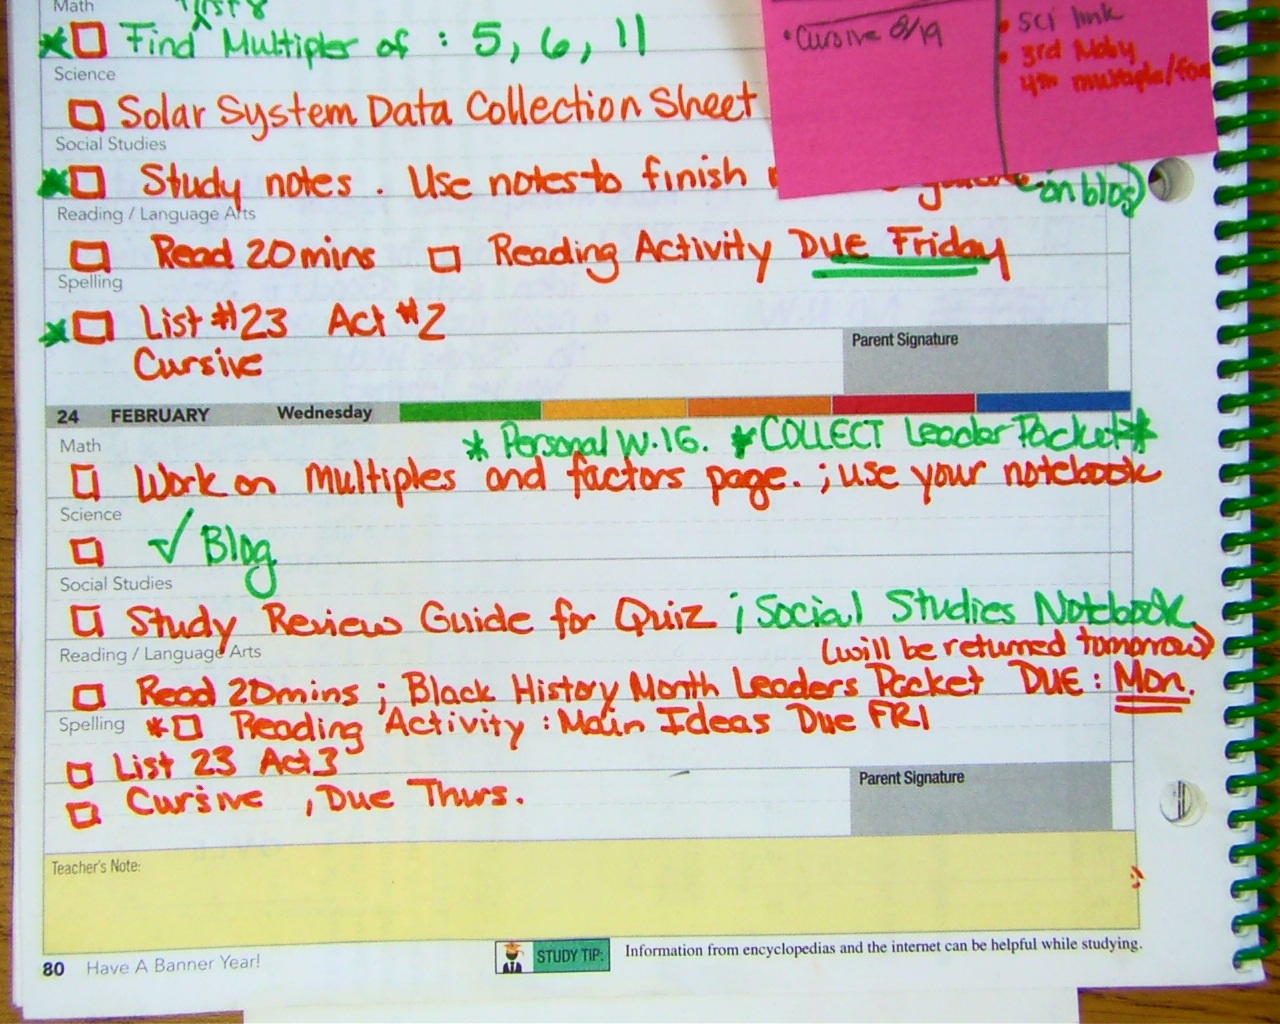 Math
first 8
Find Multiples of : 5, 6, 11
Science
Solar System Data Collection Sheet
Social Studies
Study notes . Use notes to finish
on blog)
Reading / Language Arts
Read 20 mins Reading Activity Due Friday
Spelling
List #23 Act #2
Cursive
Parent Signature
• Cursive 8/19
• sci link
• 3rd Moby
4th multiple/fa
24 FEBRUARY Wednesday
* Personal W.16. * COLLECT Leader Packet *
Math
Work on multiples and factors page. ; use your notebook
Science
✓ Blog
Social Studies
Study Review Guide for Quiz ; Social Studies Notebook
(will be returned tomorrow)
Reading / Language Arts
Read 20 mins ; Black History Month Leaders Packet DUE : Mon.
Spelling * Reading Activity : Main Ideas Due FRI
List 23 Act 3
Cursive , Due Thurs.
Parent Signature
Teacher's Note:
80 Have A Banner Year!
STUDY TIP: Information from encyclopedias and the internet can be helpful while studying.